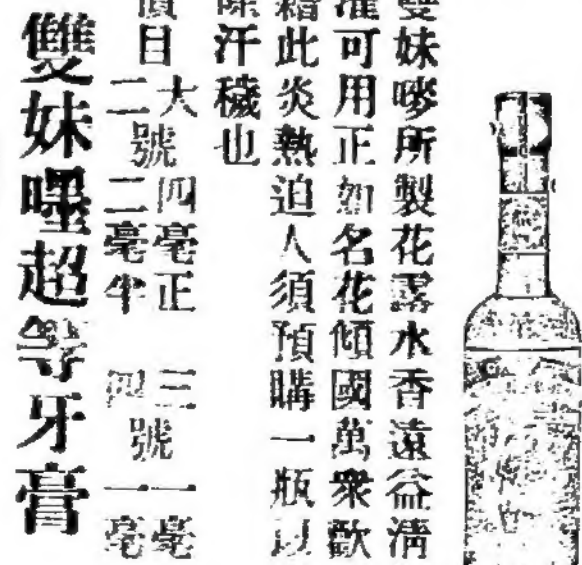 妹嘜所製花露水香遠益清
可用正如名花傾國萬衆歡
此炎熱迫人須預購一瓶以
汗穢也
目 大號四毫正 三號一毫
二號二毫半 四號一毫
雙妹嚜超等牙膏